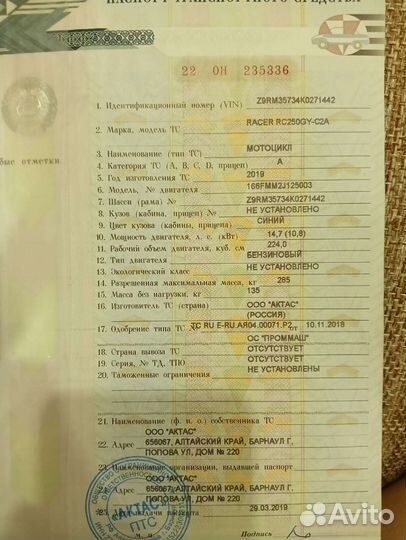 ПАСПОРТ ТРАНСПОРТНОГО СРЕДСТВА
22 ОН 235336
1. Идентификационный номер (VIN) Z9RM35734K0271442
2. Марка, модель ТС RACER RC250GY-C2A
3. Наименование (тип ТС) МОТОЦИКЛ
4. Категория ТС (А, В, С, D, прицеп) A
5. Год изготовления ТС 2019
6. Модель, № двигателя 166FMM2J125003
7. Шасси (рама) № Z9RM35734K0271442
8. Кузов (кабина, прицеп) № НЕ УСТАНОВЛЕНО
9. Цвет кузова (кабины, прицепа) СИНИЙ
10. Мощность двигателя, л. с. (кВт) 14,7 (10,8)
11. Рабочий объем двигателя, куб. см 224,0
12. Тип двигателя БЕНЗИНОВЫЙ
13. Экологический класс НЕ УСТАНОВЛЕНО
14. Разрешенная максимальная масса, кг 285
15. Масса без нагрузки, кг 135
16. Изготовитель ТС (страна) ООО "АКТАС"
(РОССИЯ)
17. Одобрение типа ТС № ТС RU E-RU.АЯ04.00071.P2 от 10.11.2018
ОС "ПРОММАШ"
18. Страна вывоза ТС ОТСУТСТВУЕТ
19. Серия, № ТД, ТПО ОТСУТСТВУЕТ
20. Таможенные ограничения НЕ УСТАНОВЛЕНЫ
бые отметки
21. Наименование (ф. и. о.) собственника ТС
ООО "АКТАС"
22. Адрес 656067, АЛТАЙСКИЙ КРАЙ, БАРНАУЛ Г,
ПОПОВА УЛ, ДОМ № 220
23. Наименование организации, выдавшей паспорт
ООО "АКТАС"
24. Адрес 656067, АЛТАЙСКИЙ КРАЙ, БАРНАУЛ Г,
ПОПОВА УЛ, ДОМ № 220
25. Дата выдачи паспорта 29.03.2019
"АКТАС"
ПТС
М. п.
Подпись
Avito